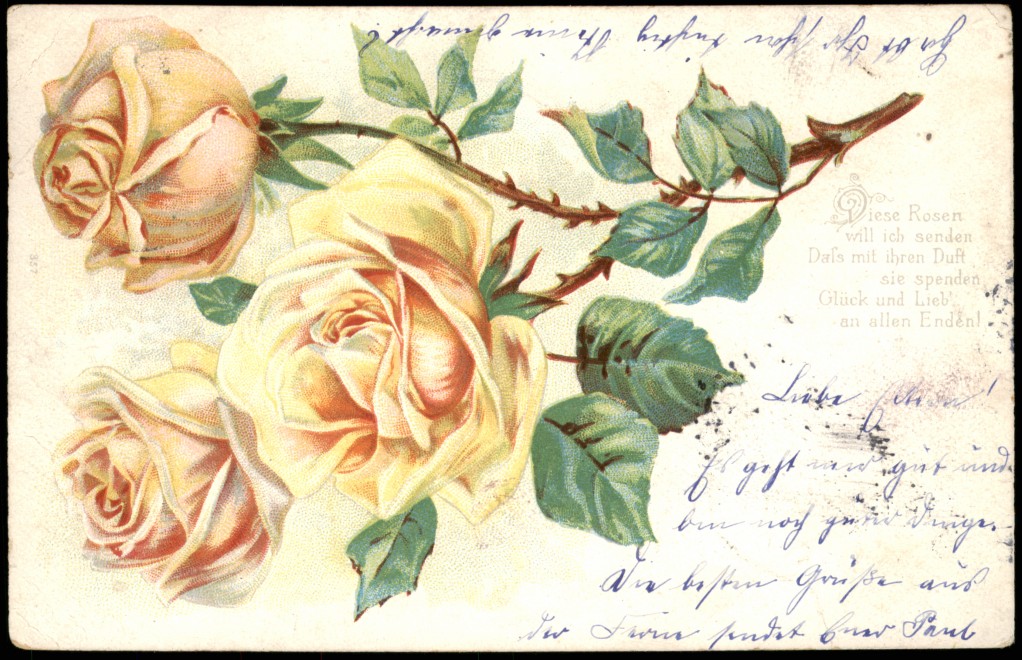 Diese Rosen
will ich senden
Daſs mit ihren Duft
sie spenden
Glück und Lieb'
an allen Enden!
Liebe
Es geht mir gut und
bin noch guter Dinge.
Die besten Grüße aus
der Ferne sendet Euer Paul
Habt Ihr schon
357